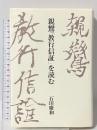 親鸞
教行信證
親鸞『教行信証』を読む
石田慶和